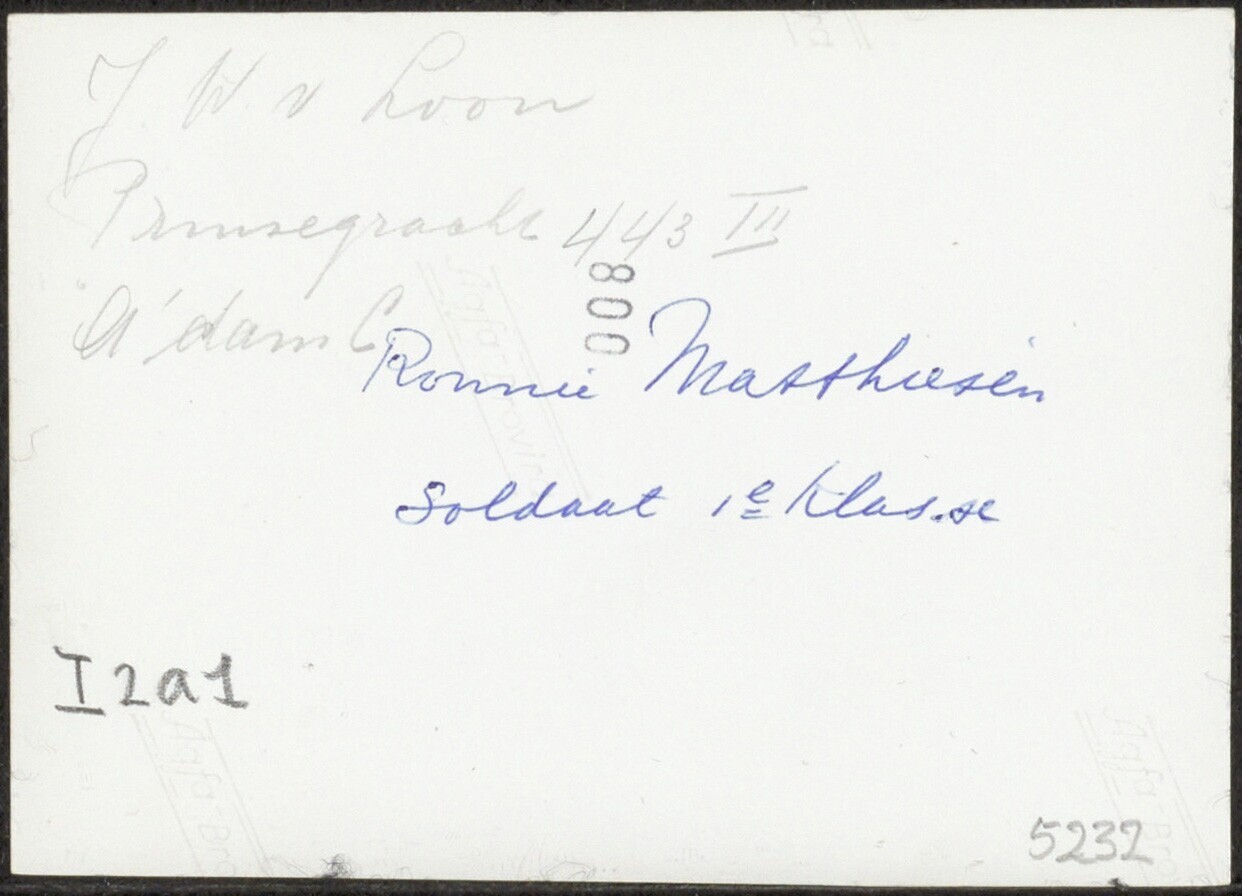 J W v Loon
Prinsegracht 443 III
A'dam C
008
Ronnie Matthiesen
Soldaat 1e Klasse
I 2a1
Agfa-Brovira
Agfa Bro
Agfa Bro
5232